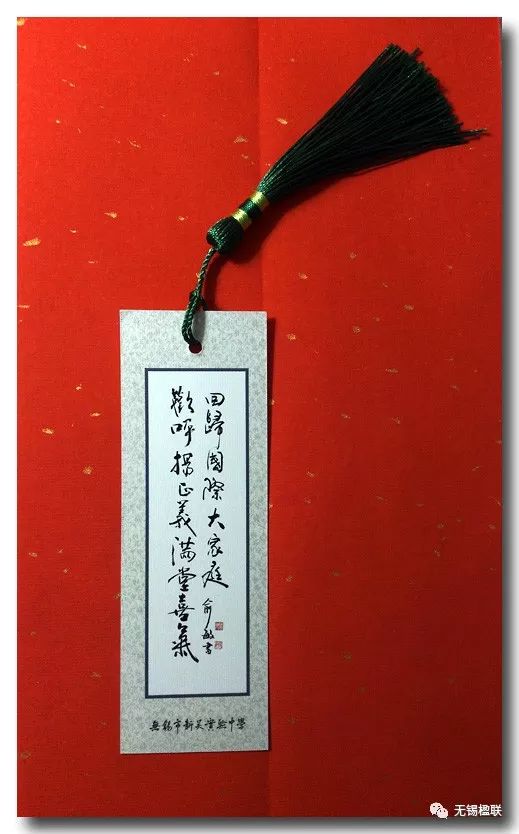 回歸國際大家庭
歡呼揚正義滿堂喜氣
俞敏書
無錫市新吳實驗中學
无锡楹联